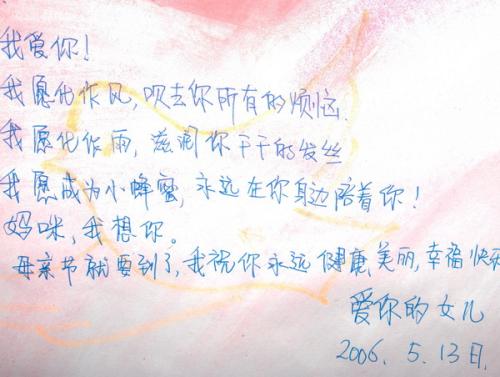 我爱你！
我愿化作风，吹去你所有的烦恼.
我愿化作雨，滋润你干干的发丝
我愿成为小蜂蜜，永远在你身边陪着你！
妈咪，我想你。
母亲节就要到了，我祝你永远健康,美丽,幸福快乐
爱你的女儿
2006. 5. 13日.